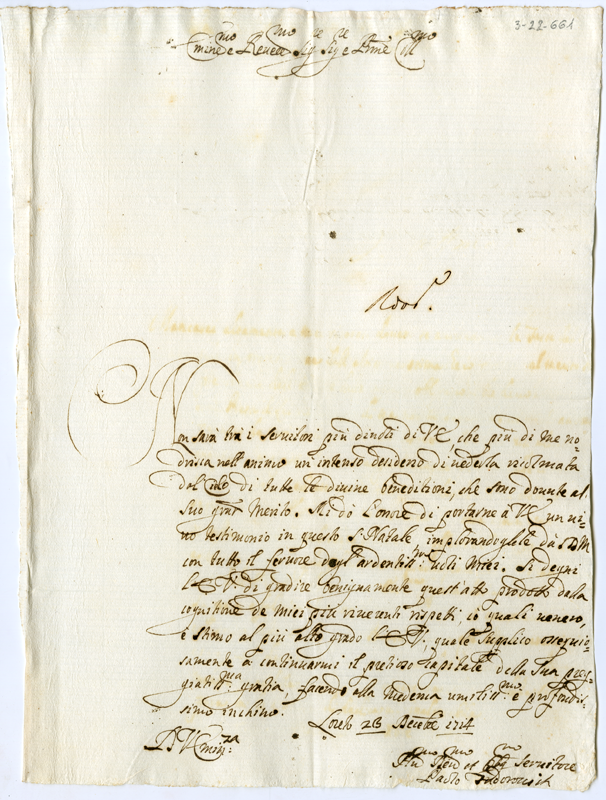 3-22-661
Emin.mo e Rever.mo Sig.re Sig.re e Prne Col.mo
Non sarà trà i Servitori più divoti di VE chi più di me no=
drisca nell'animo un'intenso desiderio di vederla ricolmata
dal Cielo di tutte le divine beneditioni, che sono dovute al
suo gran Merito. Mi dò l'onore di portarne à VE un vi=
vo testimonio in questo S. Natale, implorandogliele da S.D.M
con tutto il fervore degl'ardentiss.mi voti miei. Si degni
l'E.V. di gradire benignamente quest'atto prodotto dalla
cognitione de miei più riverenti rispetti, co quali venero,
e stimo al più alto grado l'E.V., quale supplico ossequio=
samente à continuarmi il pretioso capitale della sua pre=
giatiss.ma gratia, facendo alla medema umiliss.mo e profondis=
simo inchino.
Loreto 23 Decebre 1714
D V Emin.za
Hu.mo Dev.mo et Obl.mo Servitore
Paolo